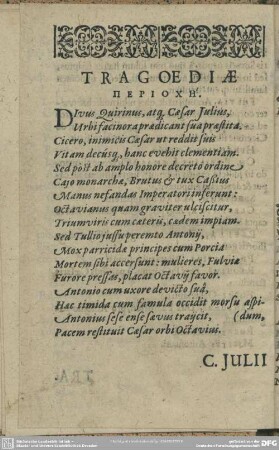 TRAGOEDIÆ
ΠΕΡΙΟΧΗ.
DIvus Quirinus, atq; Cæsar Julius,
Urbi facinora prædicant sua præstita.
Cicero, inimicis Cæsar ut reddit suis
Vitam decusq;, hanc evehit clementiam.
Sed pòst ab amplo honore decreto ordine
Cajo monarchæ, Brutus & tux Cassius
Manus nefandas Imperatori inferunt:
Octavianus quam graviter ulciscitur,
Triumviris cum cæteris, cædem impiam.
Sed Tullio jussu peremto Antonij,
Mox parricidæ principes cum Porcia
Mortem sibi accersunt: mulieres, Fulviæ
Furore pressas, placat Octavij favor.
Antonio cum uxore devicto suâ,
Hæc timida cum famula occidit morsu aspi-
Antonius sese ense sævus traijcit, (dum,
Pacem restituit Cæsar orbi Octavius.
C. JULII